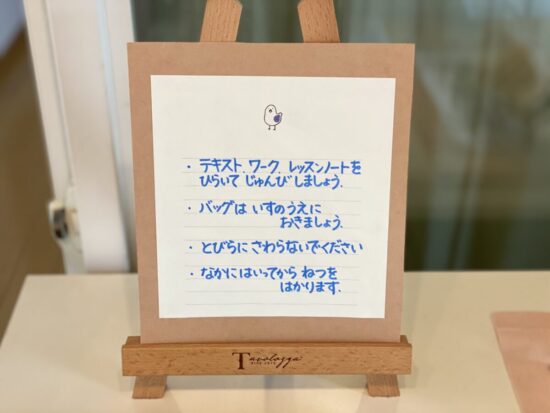 ・テキスト、ワーク、レッスンノートを
ひらいて じゅんび しましょう.
・バッグは いすのうえに
おきましょう.
・とびらに さわらないでください
・なかにはいってから ねつを
はかります.